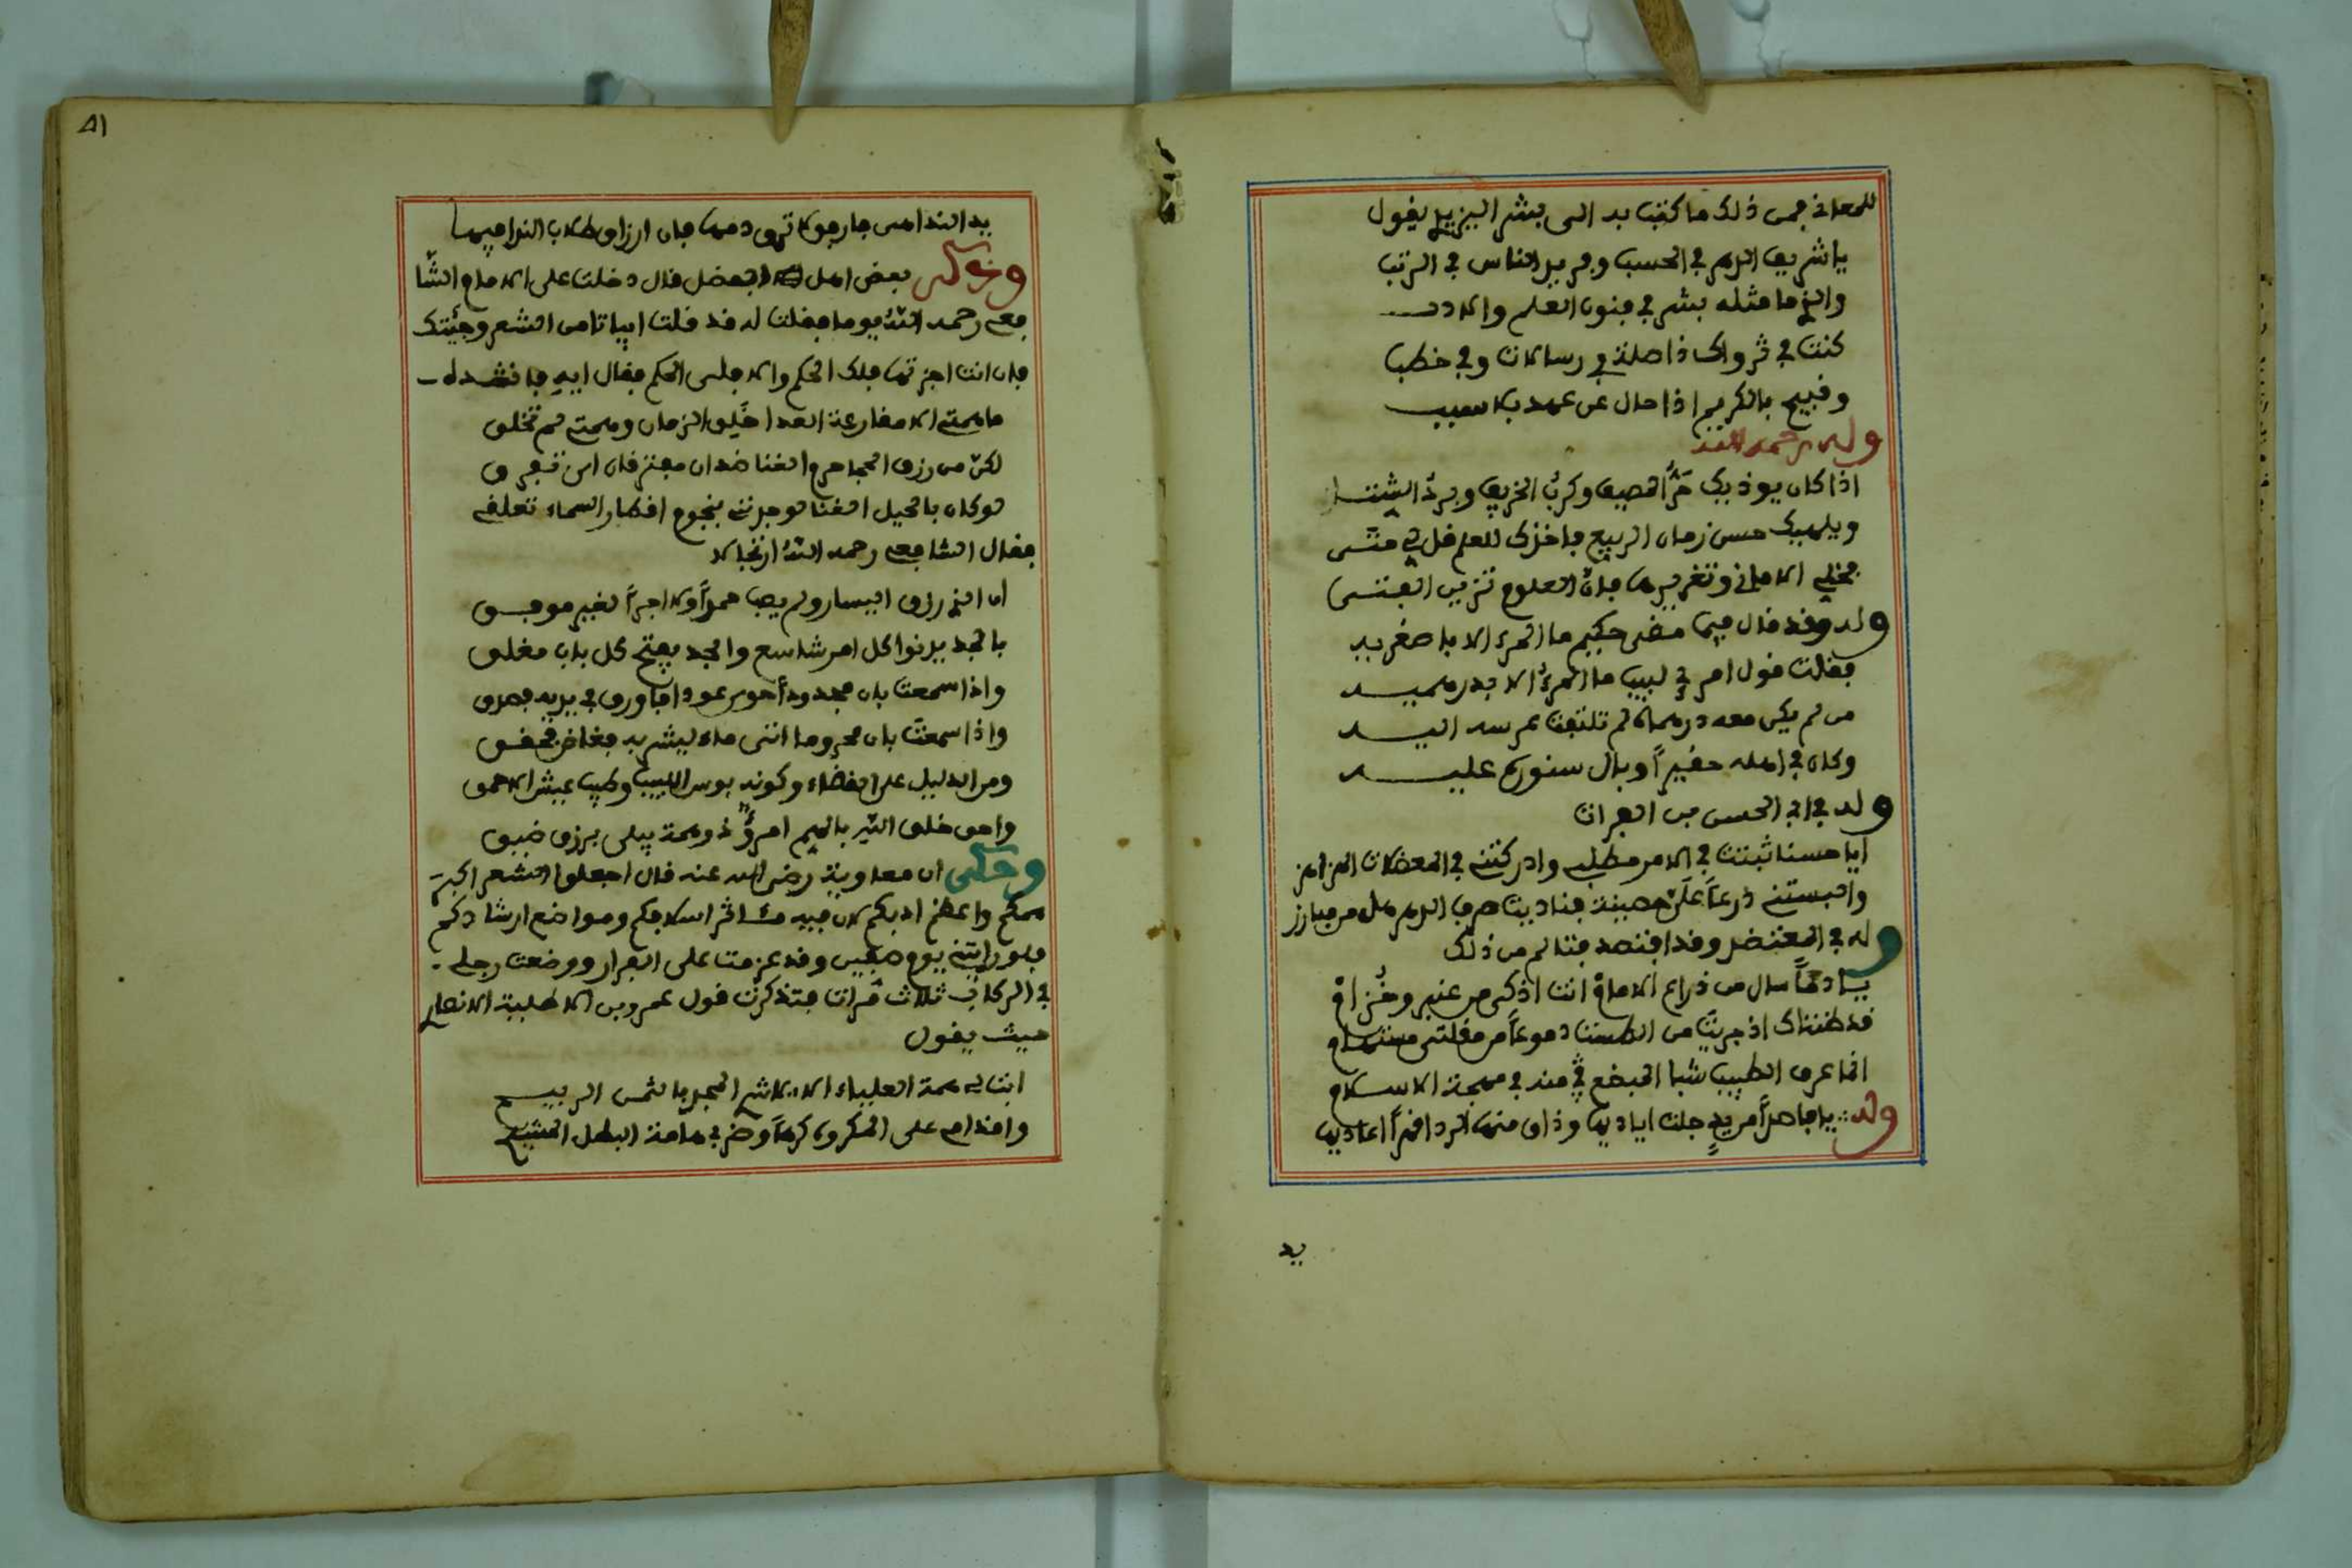 للمعانى فمن ذلك ما كتب به الى بشر اليزيدي يقول
يا شريف الدهر في الحسب وفريد الناس في الرتب
والذي ما مثله بشر في فنون العلم والادب
كنت في ذا صلة في رسالات وفي خطب
وقبيح بالكريم اذا حال عن عهد بلا سبب
وله رحمه الله
اذا كان يوذيك حرّ المصيف وكربُ الخريف وبردُ الشتا
ويلهيك حسن زمان الربيع فاخذك للعلم قل لي متى
فخلي الاماني وتغريرها فانّ العلوم تزين الفتى
وله وقد قال فيما مضى حكيم ما المرء الا باصغريه
فقلت قول امرئ لبيب ما المرءُ الا بدرهميه
من لم يكن معه درهماه لم تلتفت عرسه اليه
وكان في اهله حقيراً وبال سنورهم عليه
وله في ابي الحسن بن الفرات
ايا حسنا ثبتت في الامر مطلبي وادركتني في المعضلات الهزاهز
والبستني درعاً عليّ حصينة فناديت صرف الدهر هل من مبارز
وله في المعتضد وقد افتصد فتالم من ذلك
يا دماً سال من ذراع الامام انت اذكى من عنبر ومُدام
قد ظنناك اذ جريت من الطست دموعاً من مقلتي مستهام
انما غرق الطبيب شبا المبضع في منه في مهجة الاسلام
وله يا فاصداً من يدٍ جلت اياديها وذاق منها الردا قسراً اعاديها
يد
٥١
يد الندا هي فارجو لا تهرق دمها فان ارزاق طلاب الندا فيها
وحكى بعض اهل الفضل قال دخلت على الامام الشّا
فعي رحمه اللّه يوما فقلت له قد قلت ابياتا من الشعر وجئتك
فان انت اجزتها فلك الحكم والا فلى الحكم فقال ايه فانشدته
ما همتي الا مقارعة العدا خَلِق الزمان وهمتي لم تخلق
لكنّ من رزق الحجا حرم الغنا ضدان مفترقان اي تفرق
لو كان بالحيل الغنا لوجدتني بنجوم اقطار السماء تعلقي
فقال الشافعي رحمه اللّه ارتجالا
ان الذي رزق اليسار ولم يصب حمداً ولا اجراً لغير موفق
بالجد يدنوا كل امر شاسع والجد يفتح كل باب مغلق
واذا سمعت بان مجدودا حوى عودا فاورق في يديه فصدق
واذا سمعت بان محروما اتى ماء ليشربه فغاض فحقق
ومن الدليل على القضاء وكونه بوس اللبيب وطيب عيش الاحمق
واحق خلق اللّه بالهم امرؤٌ ذو همة يبلى برزق ضيق
وحكى ان معاوية رضي الله عنه قال اجعلوا الشعر اكبر
همكم واعظم ادبكم لان فيه مئاثر اسلافكم ومواضع ارشادكم
فلو رايتني يوم صفين وقد عزمت على الفرار ووضعت رجلي
في الركاب ثلاث مرات فتذكرت قول عمرو بن الاطلبية الانصاري
حيث يقول
ابت لي همة العلياء الا شراء المجد بالثمن الربيح
واقدامي على المكروه كرهاً وضربي هامة البطل المشيح